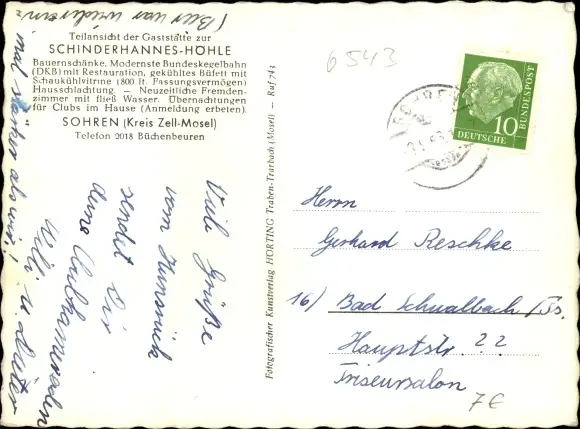 Teilansicht der Gaststätte zur
SCHINDERHANNES-HÖHLE
Bauernschänke. Modernste Bundeskegelbahn
(DKB) mit Restauration, gekühltes Büfett mit
Schaukühlvitrine (800 lt. Fassungsvermögen)
Hausschlachtung. — Neuzeitliche Fremden-
zimmer mit fließ Wasser. Übernachtungen
für Clubs im Hause (Anmeldung erbeten).
SOHREN (Kreis Zell-Mosel)
Telefon 2018 Büchenbeuren
Viele Grüße
vom Hunsrück
sendet Dir
deine
Willi u.
(Bier war wiederein-
mal stärker als wir!
Fotografischer Kunstverlag HORTING Traben-Trarbach (Mosel) — Ruf 743
6543
SOHREN
10
DEUTSCHE
BUNDESPOST
Herrn
Gerhard Reschke
16) Bad Schwalbach/Ts.
Hauptstr. ??
Friseursalon
7€